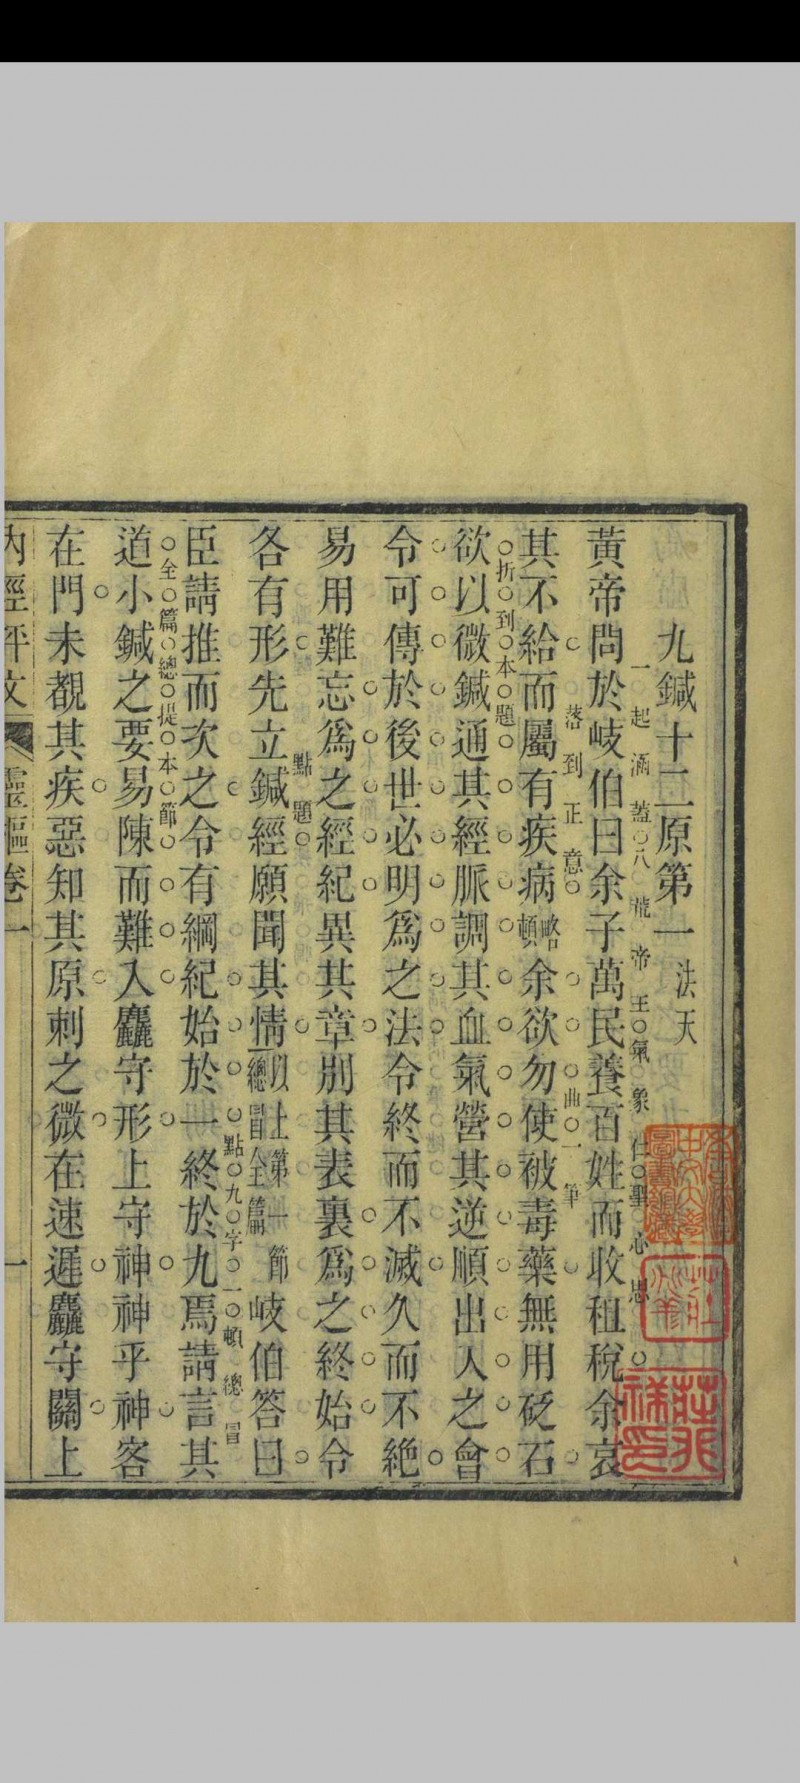 九鍼十二原第一法天
一起涵蓋八荒帝王氣象仕聖心思
黃帝問於岐伯曰余子萬民養百姓而收租稅余哀
落到正意曲一筆
其不給而屬有疾病略頓余欲勿使被毒藥無用砭石
折到本題
欲以微鍼通其經脈調其血氣營其逆順出入之會
令可傳於後世必明爲之法令終而不滅久而不絕
易用難忘爲之經紀異其章別其表裏爲之終始令
點題
各有形先立鍼經願聞其情以上第一節總冒全篇岐伯答曰
點九字一頓總冒
臣請推而次之令有綱紀始於一終於九焉請言其
全篇總提本節
道小鍼之要易陳而難入麤守形上守神神乎神客
在門未覩其疾惡知其原刺之微在速遲麤守關上
內經評文 靈樞卷一 一